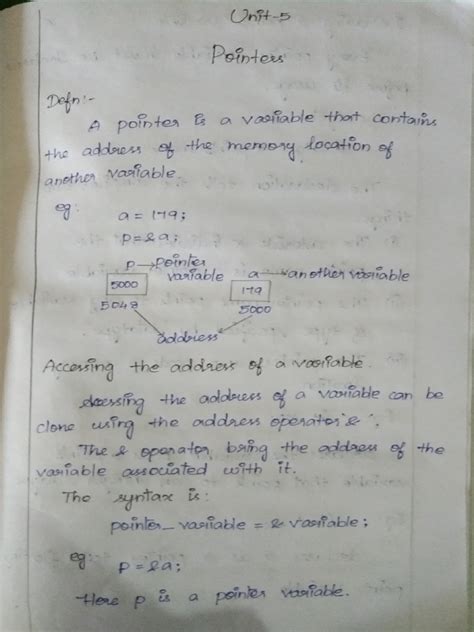 Unit-5
Pointers
Defn:-
A pointer is a variable that contains
the address of the memory location of
another variable.
eg:
a = 179;
p = & a;
p → pointer variable a → another variable
5000 179
5048 5000
address
Accessing the address of a variable.
Accessing the address of a variable can be
done using the address operator '&'.
The & operator bring the address of the
variable associated with it.
The syntax is:
pointer_variable = & variable;
eg p = & a;
Here p is a pointer variable.